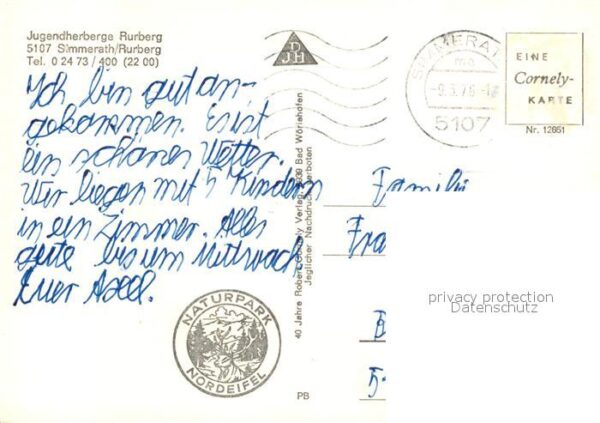 Jugendherberge Rurberg
5107 Simmerath/Rurberg
Tel. 0 24 73 / 400 (22 00)
Ich bin gut an-
gekommen. Es ist
ein schönes Wetter.
Wir liegen mit 5 Kindern
in ein Zimmer. Alles
gute bis um Mittwoch
Euer Axel.
DJH
SIMMERAT
-9.3.76-
5107
EINE
Cornely-
KARTE
Nr. 12051
40 Jahre Robert Cornely Verlag, 8939 Bad Wörishofen
Jeglicher Nachdruck verboten
Familie
Fra
privacy protection
Datenschutz
B
5
NATURPARK
NORDEIFEL
PB